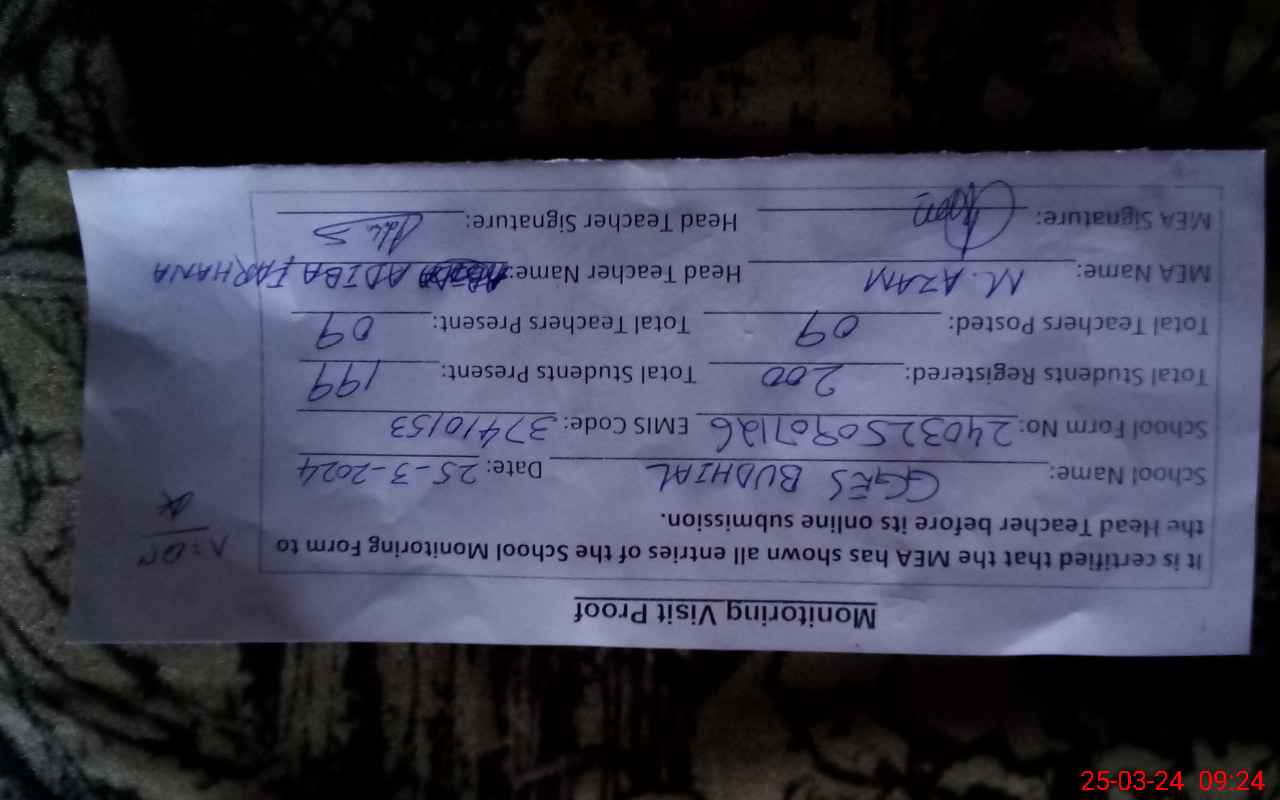 Monitoring Visit Proof
It is certified that the MEA has shown all entries of the School Monitoring Form to
the Head Teacher before its online submission.
School Name: GGES BUDHIAL Date: 25-3-2024
School Form No: 2403250907126 EMIS Code: 37410153
Total Students Registered: 200 Total Students Present: 199
Total Teachers Posted: 09 Total Teachers Present: 09
MEA Name: M. AZAM Head Teacher Name: ADIBA FARHANA
MEA Signature: Head Teacher Signature:
25-03-24 09:24